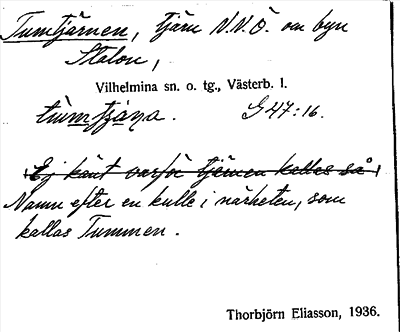 Tumtjärnen, tjärn N.N.Ö. om byn
Stalon,
Vilhelmina sn. o. tg., Västerb. l.
tùmtjạ̈ṇa. G 47:16.
Ej känt varför tjärnen kallas så
Namn efter en kulle i närheten, som
kallas Tummen.
Thorbjörn Eliasson, 1936.